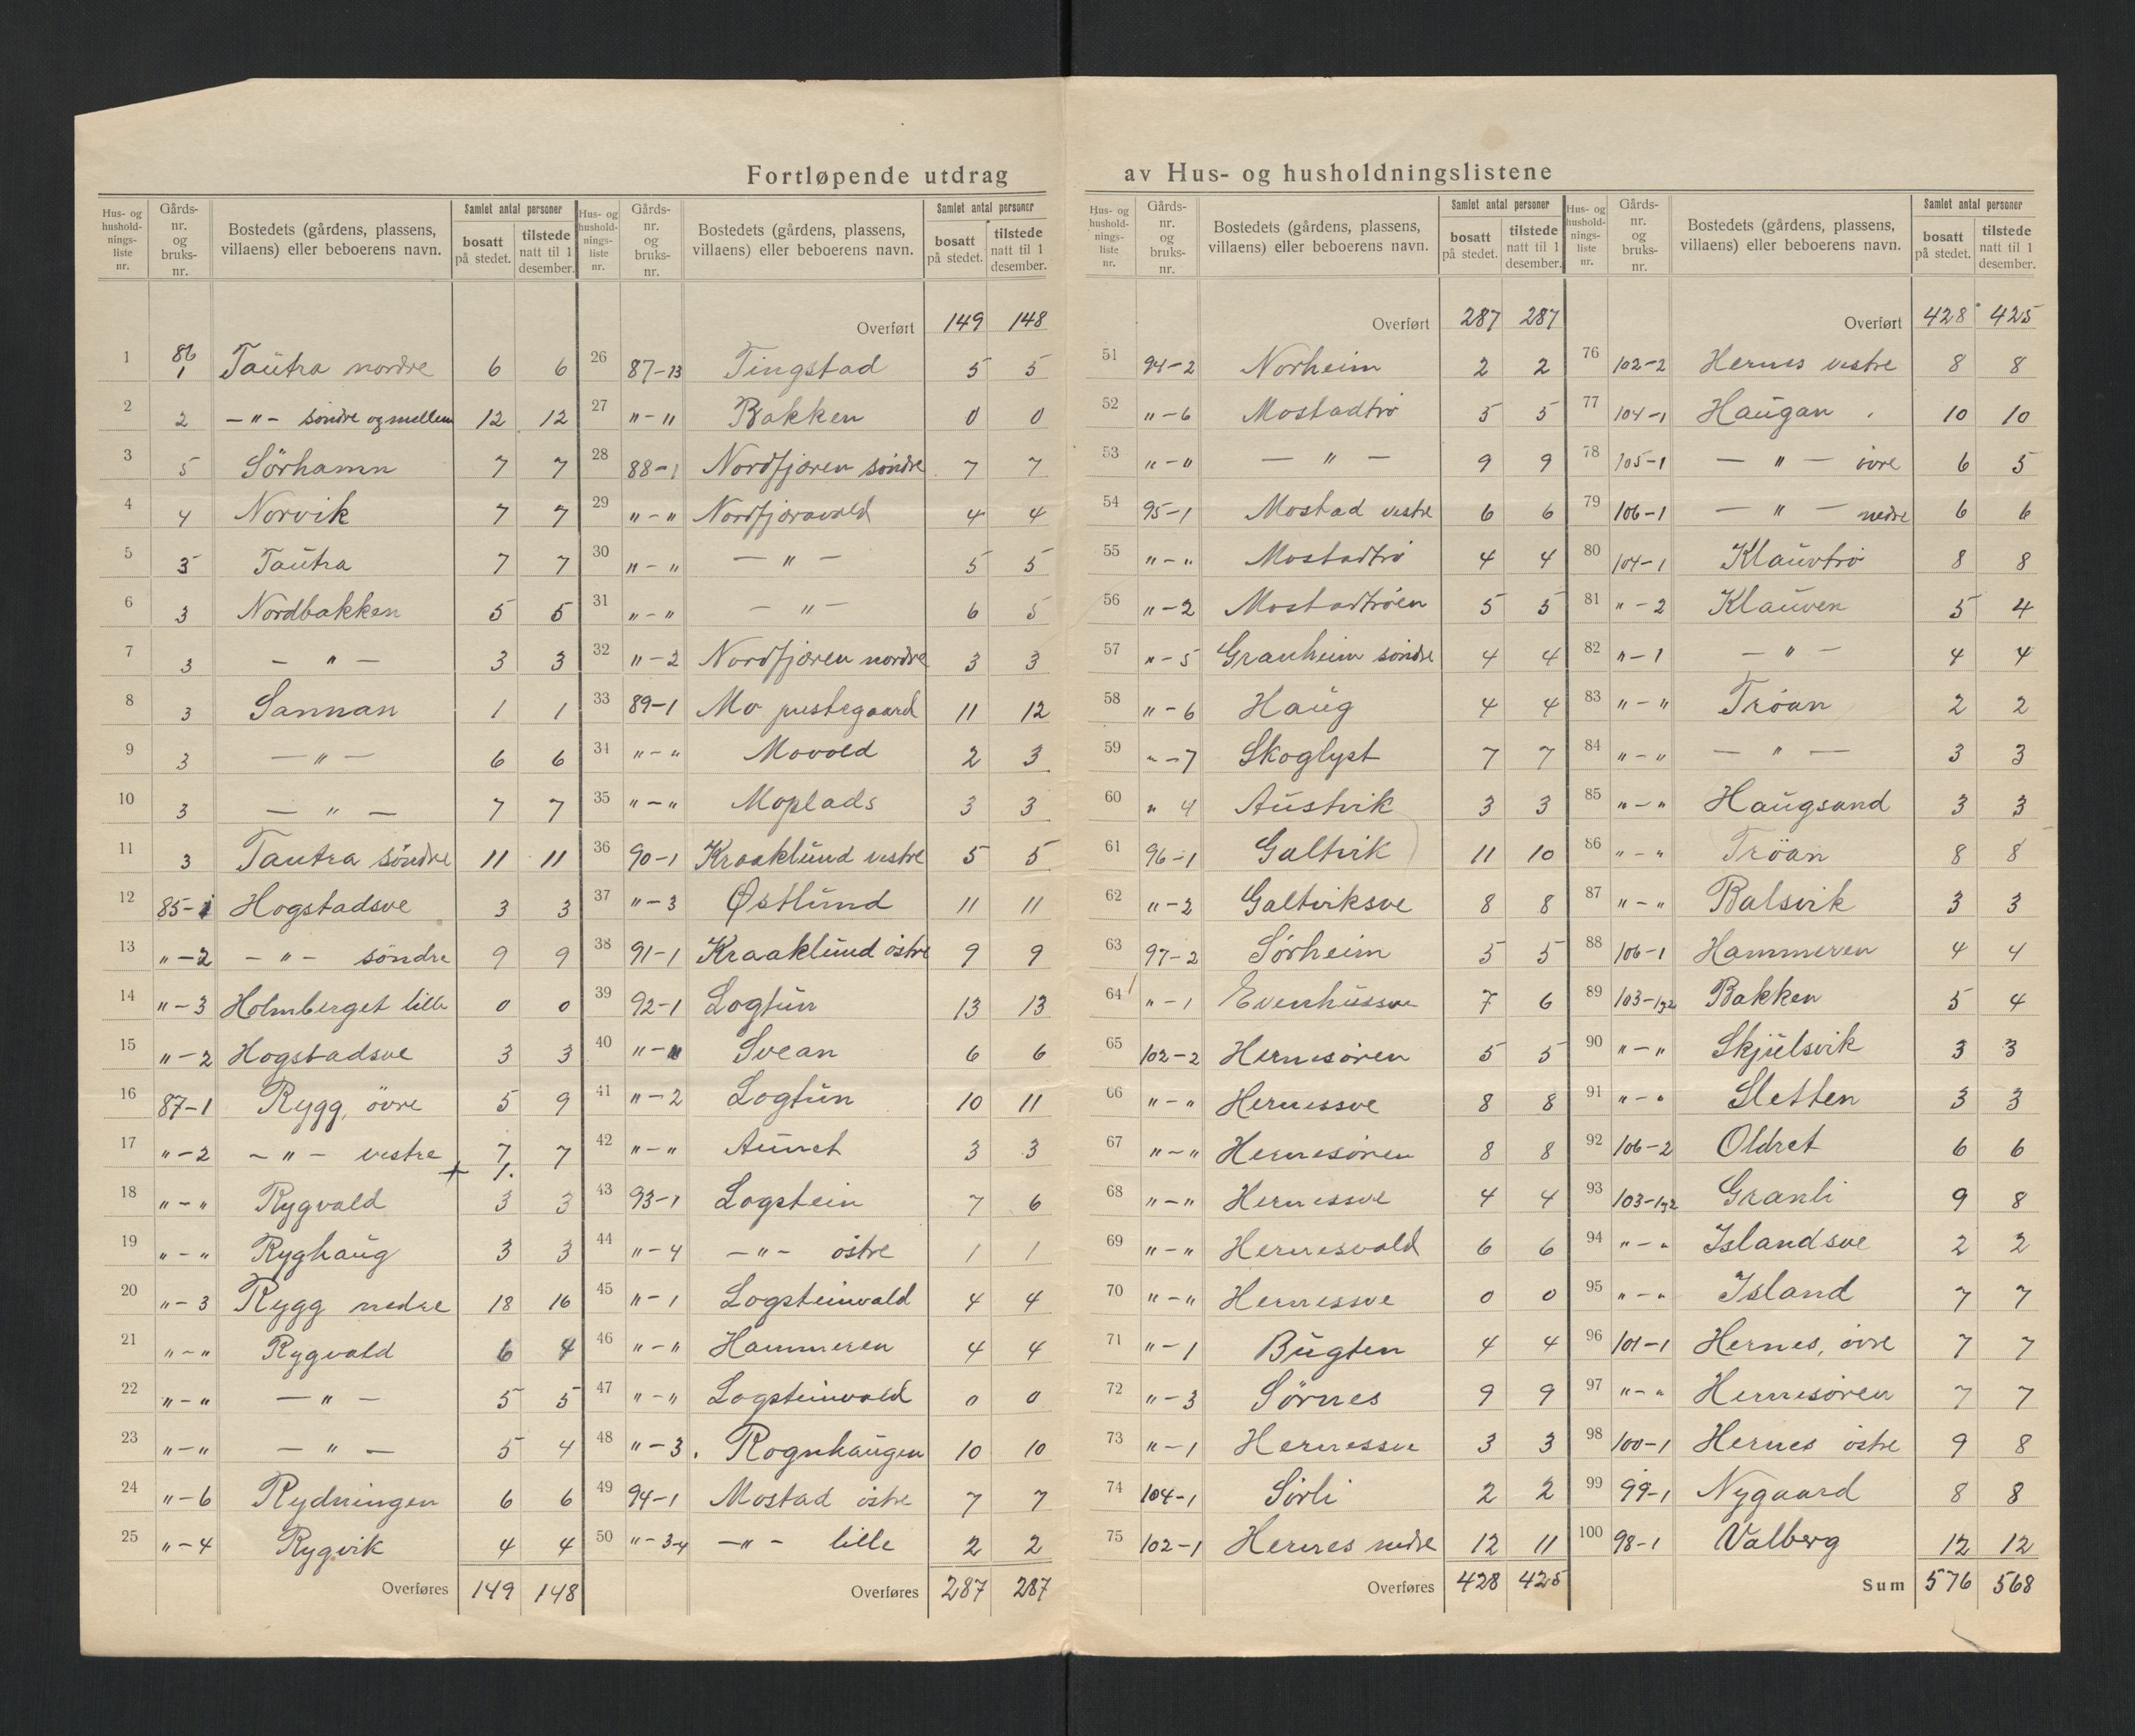 Fortløpende utdrag av Hus- og husholdningslistene
Hus- og husholdnings-liste nr. | Gårds-nr. og bruks-nr. | Bostedets (gårdens, plassens, villaens) eller beboerens navn. | Samlet antal personer bosatt på stedet. | tilstede natt til 1 desember.
1 86 1 Tautra nordre 6 6
2 2 — " — söndre og mellem 12 12
3 5 Sörhamn 7 7
4 4 Norvik 7 7
5 3 Tautra 7 7
6 3 Nordbakken 5 5
7 3 — " — 3 3
8 3 Sannan 1 1
9 3 — " — 6 6
10 3 — " — 7 7
11 3 Tautra söndre 11 11
12 85-1 Hogstadsve 3 3
13 "-2 — " — söndre 9 9
14 "-3 Holmberget lille 0 0
15 "-2 Hogstadsve 3 3
16 87-1 Rygg, övre 5 9
17 "-2 — " — vestre 7 7
+ 1.
18 "-" Rygvald 3 3
19 "-" Ryghaug 3 3
20 "-3 Rygg nedre 18 16
21 "-" Rygvald 6 4
22 "-" — " — 5 5
23 "-" — " — 5 4
24 "-6 Rydningen 6 6
25 "-4 Rygvik 4 4
Overføres 149 148
Hus- og husholdnings-liste nr. | Gårds-nr. og bruks-nr. | Bostedets (gårdens, plassens, villaens) eller beboerens navn. | Samlet antal personer bosatt på stedet. | tilstede natt til 1 desember.
Overført 149 148
26 87-13 Tingstad 5 5
27 "-" Bakken 0 0
28 88-1 Nordfjæren söndre 7 7
29 "-" Nordfjæravald 4 4
30 "-" — " — 5 5
31 "-" — " — 6 5
32 "-2 Nordfjæren nordre 3 3
33 89-1 Mo prestegaard 11 12
34 "-" Movold 2 3
35 "-" Moplads 3 3
36 90-1 Kraaklund vestre 5 5
37 "-3 Østlund 11 11
38 91-1 Kraaklund östre 9 9
39 92-1 Logtun 13 13
40 "-" Svean 6 6
41 "-2 Logtun 10 11
42 "-" Aunet 3 3
43 93-1 Logstein 7 6
44 "-4 — " — östre 1 1
45 "-1 Logsteinvald 4 4
46 "-" Hammeren 4 4
47 "-" Logsteinvald 0 0
48 "-3. Rognhaugen 10 10
49 94-1 Mostad östre 7 7
50 "-3-4 — " — lille 2 2
Overføres 287 287
Hus- og husholdnings-liste nr. | Gårds-nr. og bruks-nr. | Bostedets (gårdens, plassens, villaens) eller beboerens navn. | Samlet antal personer bosatt på stedet. | tilstede natt til 1 desember.
Overført 287 287
51 94-2 Norheim 2 2
52 "-6 Mostadtrö 5 5
53 "-" — " — 9 9
54 95-1 Mostad vestre 6 6
55 "-" Mostadtrö 4 4
56 "-2 Mostadtröen 5 5
57 "-5 Granheim söndre 4 4
58 "-6 Haug 4 4
59 "-7 Skoglyst 7 7
60 " 4 Austvik 3 3
61 96-1 Galtvik 11 10
62 "-2 Galtviksve 8 8
63 97-2 Sörheim 5 5
64 "-1 Evenhussve 7 6
65 102-2 Hernesören 5 5
66 "-" Hernessve 8 8
67 "-" Hernesören 8 8
68 "-" Hernessve 4 4
69 "-" Hernesvald 6 6
70 "-" Hernessve 0 0
71 "-1 Bugten 4 4
72 "-3 Sörnes 9 9
73 "-1 Hernessve 3 3
74 104-1 Sörli 2 2
75 102-1 Hernes nedre 12 11
Overføres 428 425
Hus- og husholdnings-liste nr. | Gårds-nr. og bruks-nr. | Bostedets (gårdens, plassens, villaens) eller beboerens navn. | Samlet antal personer bosatt på stedet. | tilstede natt til 1 desember.
Overført 428 425
76 102-2 Hernes vestre 8 8
77 104-1 Haugan 10 10
78 105-1 — " — övre 6 5
79 106-1 — " — nedre 6 6
80 104-1 Klauvtrö 8 8
81 "-2 Klauven 5 4
82 "-1 — " — 4 4
83 "-" Tröan 2 2
84 "-" — " — 3 3
85 "-" Haugsand 3 3
86 "-" Tröan 8 8
87 "-" Balsvik 3 3
88 106-1 Hammeren 4 4
89 103-1,2 Bakken 5 4
90 "-" Skjelsvik 3 3
91 "-" Sletten 3 3
92 106-2 Oldret 6 6
93 103-1,2 Granli 9 8
94 "-" Islandsve 2 2
95 "-" Island 7 7
96 101-1 Hernes, övre 7 7
97 "-" Hernesören 7 7
98 100-1 Hernes östre 9 8
99 99-1 Nygaard 8 8
100 98-1 Valberg 12 12
Sum 576 568